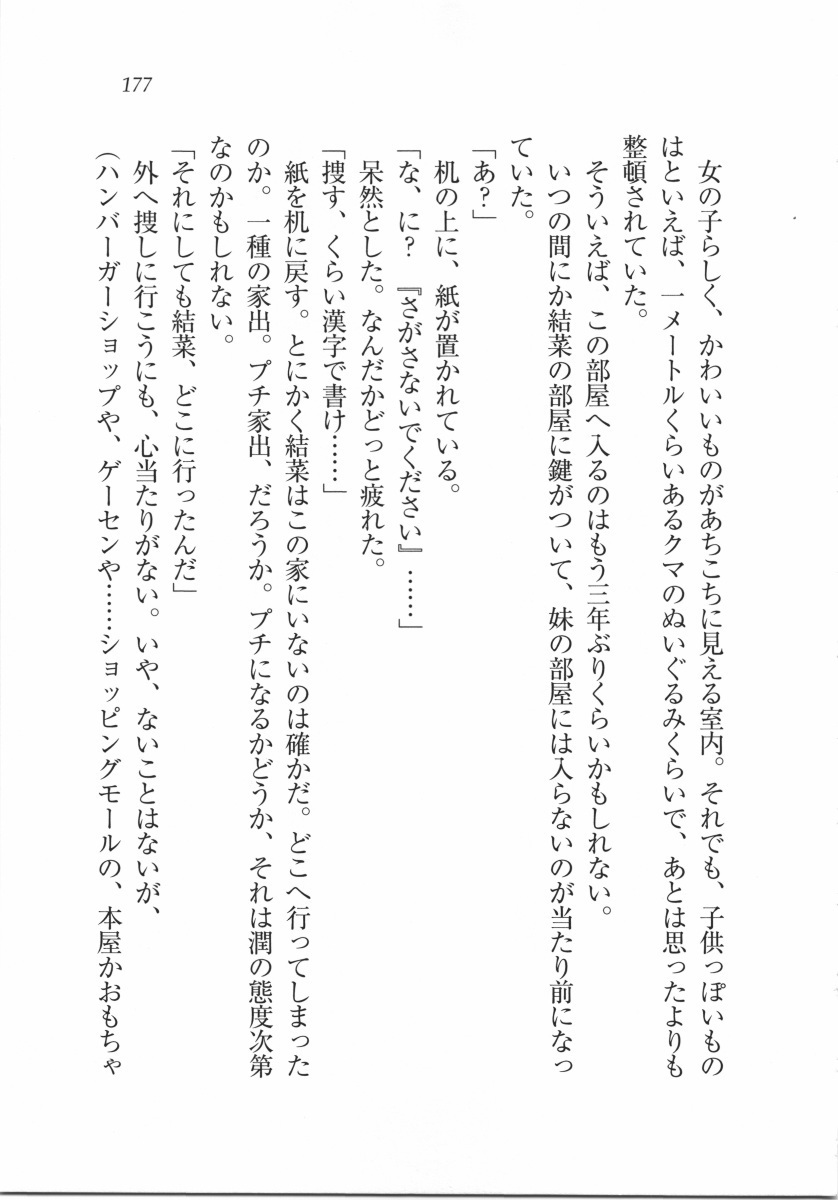 177
　女の子らしく、かわいいものがあちこちに見える室内。それでも、子供っぽいもの
はといえば、一メートルくらいあるクマのぬいぐるみくらいで、あとは思ったよりも
整頓されていた。
　そういえば、この部屋へ入るのはもう三年ぶりくらいかもしれない。
　いつの間にか結菜の部屋に鍵がついて、妹の部屋には入らないのが当たり前になっ
ていた。
「あ？」
　机の上に、紙が置かれている。
「な、に？　『さがさないでください』……」
　呆然とした。なんだかどっと疲れた。
「捜す、くらい漢字で書け……」
　紙を机に戻す。とにかく結菜はこの家にいないのは確かだ。どこへ行ってしまった
のか。一種の家出。プチ家出、だろうか。プチになるかどうか、それは潤の態度次第
なのかもしれない。
「それにしても結菜、どこに行ったんだ」
　外へ捜しに行こうにも、心当たりがない。いや、ないことはないが、
（ハンバーガーショップや、ゲーセンや……ショッピングモールの、本屋かおもちゃ